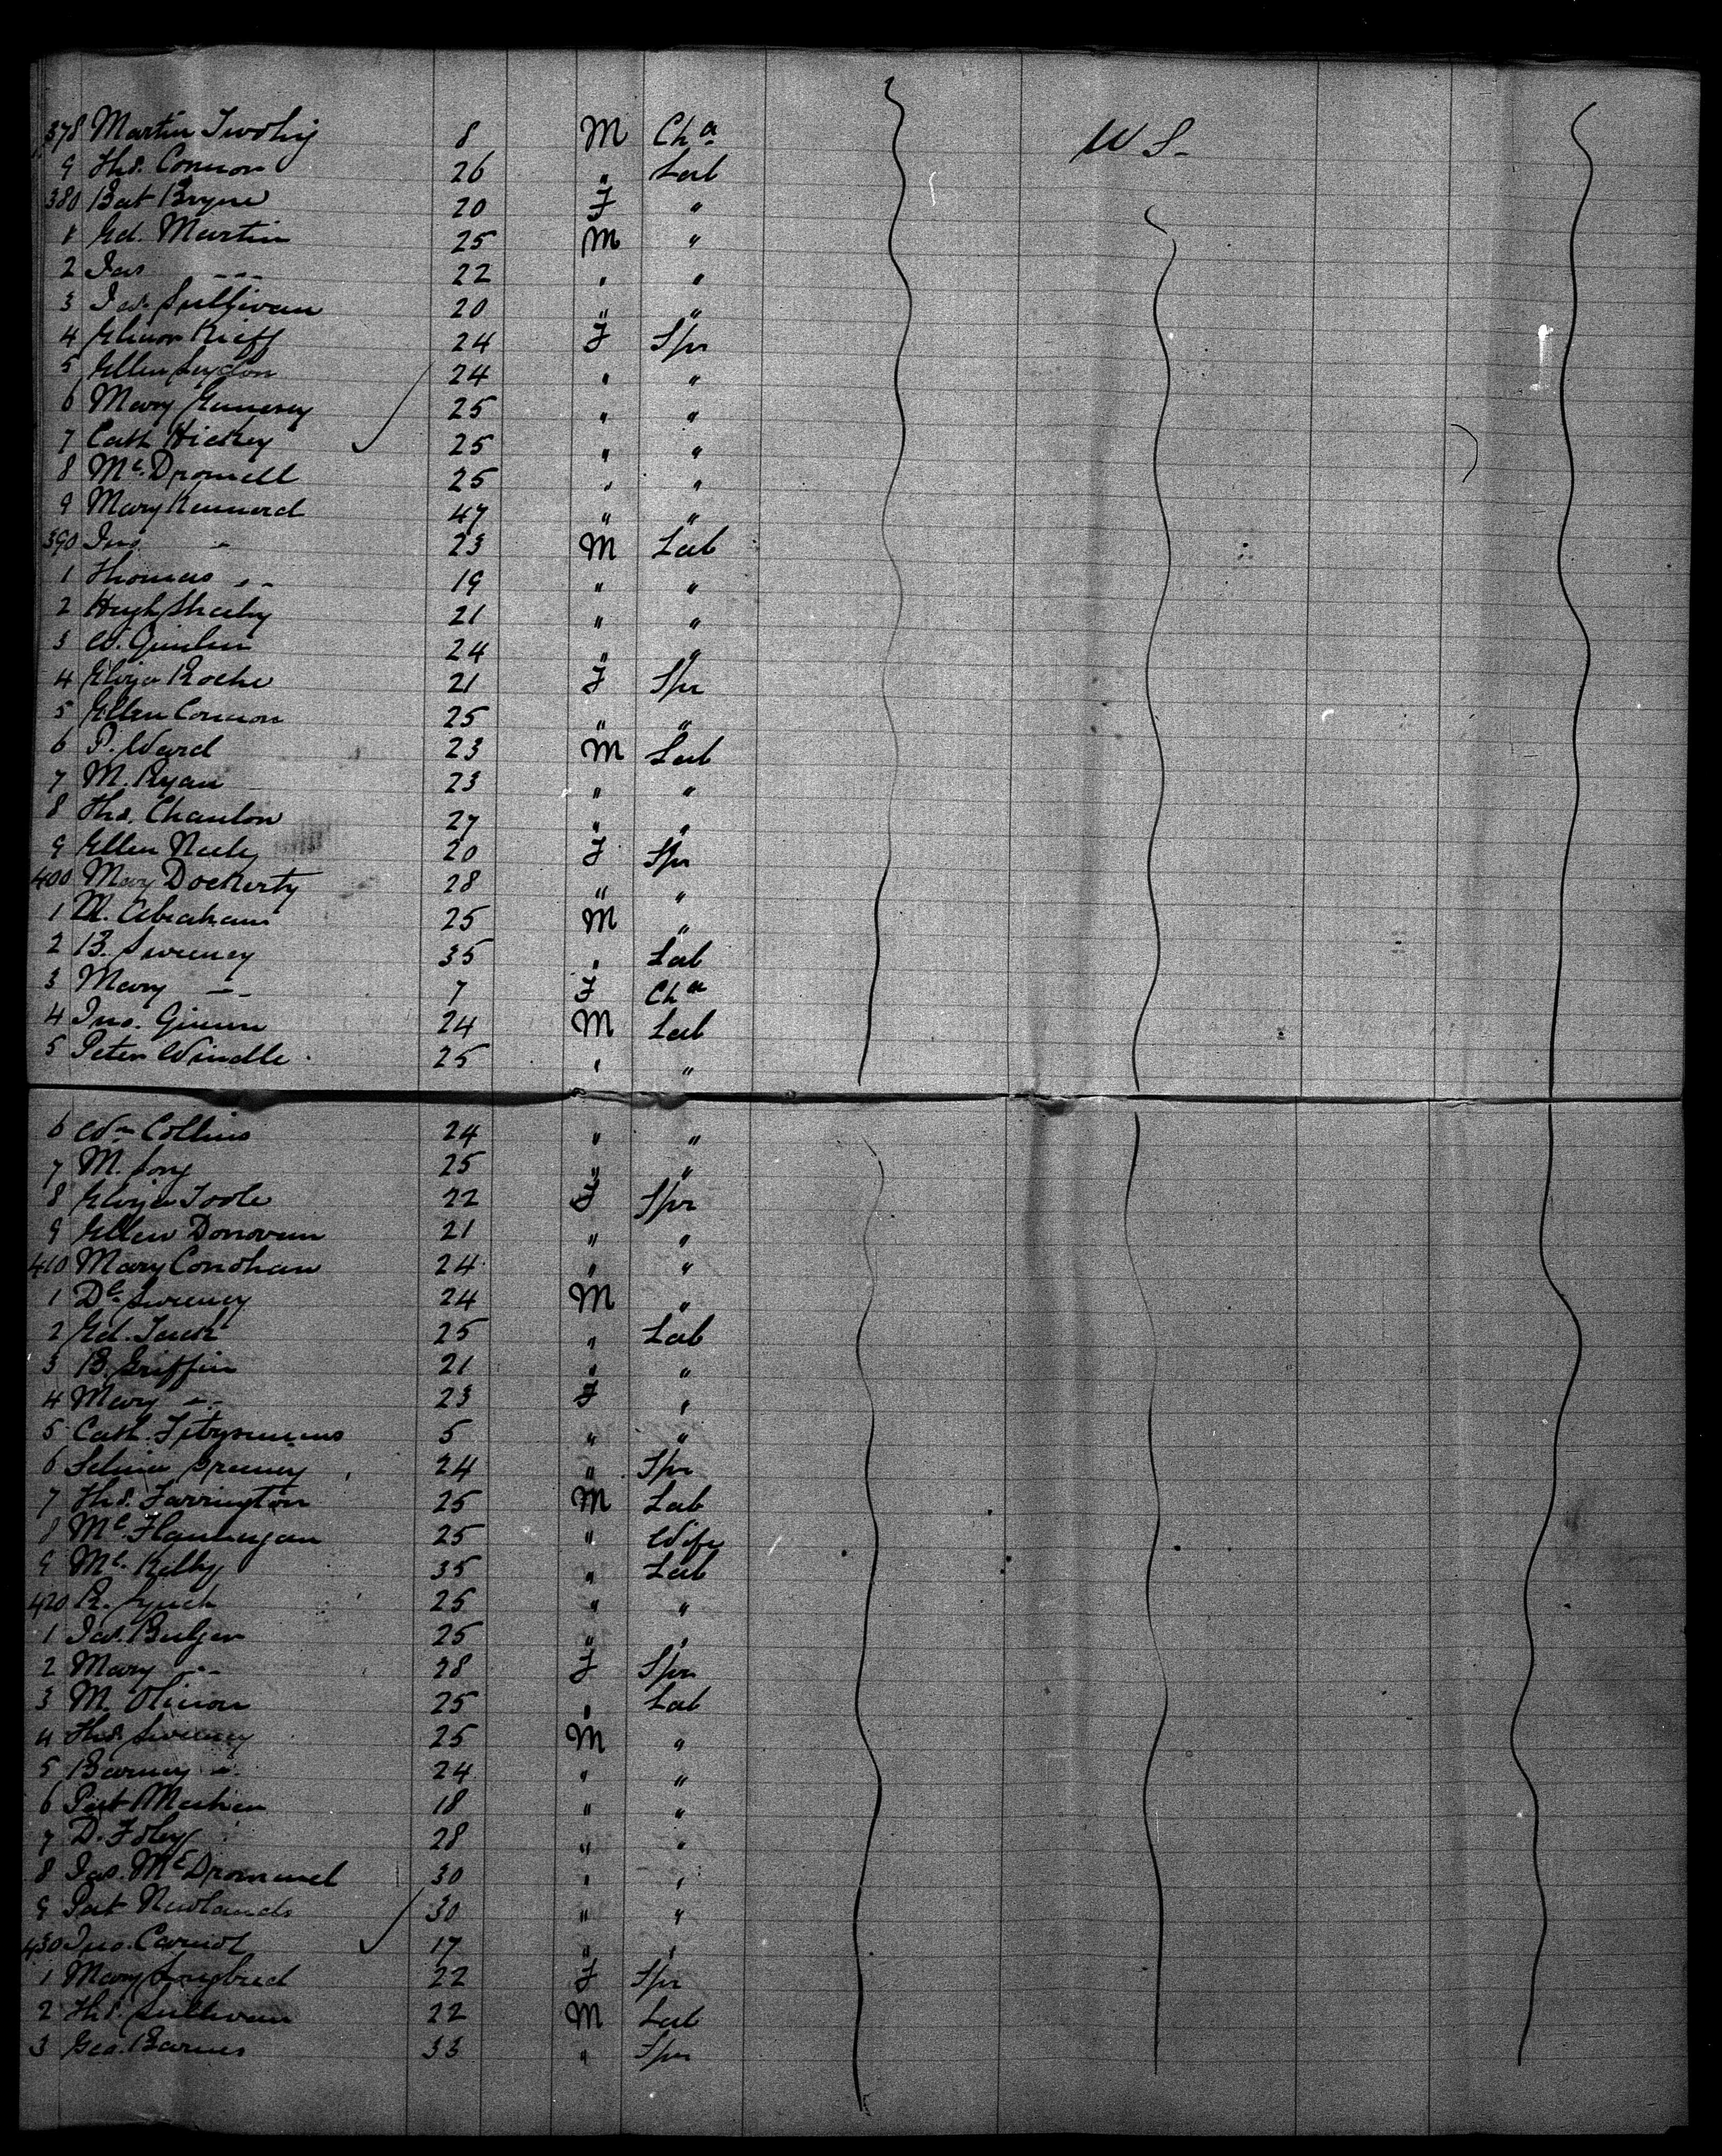 378 Martin Twohig 8 M Cha W S-
9 Thos. Connor 26 " Lab
380 Bat Bryne 20 F "
1 Ed. Martin 25 M "
2 Jas -- 22 " "
3 Jas. Sullivan 20 " "
4 Elinor Kieff 24 F Spr
5 Ellen Leydon 24 " "
6 Mary 25 " "
7 Cath Hickey 25 " "
8 Mc. Dromell 25 " "
9 Mary Kennerd 47 " "
390 Jno - 23 M Lab
1 Thomas -- 19 " "
2 Hugh Sheehy 21 " "
3 W. 24 " "
4 Eliza Roche 21 F Spr
5 Ellen Connon 25 " "
6 P. Ward 23 M Lab
7 M. Ryan 23 " "
8 Thos. Chanlon 27 " "
9 Ellen Neely 20 F Spr
400 Mary Dockerty 28 " "
1 M. Abraham 25 M "
2 B. Sweeney 35 " Lab
3 Mary -- 7 F Cha
4 Jno. 24 M Lab
5 Peter Windle 25 " "
6 Wm Collins 24 " "
7 M. Long 25 " "
8 Eliza Toole 22 F Spr
9 Ellen Donovan 21 " "
410 Mary Conohan 24 " "
1 Dl. Sweeney 24 M "
2 Ed. 25 " Lab
3 B. Griffin 21 " "
4 Mary -- 23 F "
5 Cath. Fitzsimmons 5 " "
6 Selina 24 " Spr
7 Thos. Farrington 25 M Lab
8 Ml. Flannegan 25 " Wife
9 Ml. Kelly 35 " Lab
420 R. Lynch 25 " "
1 Jas. Bulger 25 " "
2 Mary -- 28 F Spr
3 M. 25 " Lab
4 Thos. Sweeney 25 M "
5 Barney -- 24 " "
6 Pat Mechan 18 " "
7 D. Foley 28 " "
8 Jas. McDrommel 30 " "
9 Pat Newlands 30 " "
430 Jno. 17 " "
1 Mary 22 F Spr
2 Thos. Sullivan 22 M Lab
3 Geo. Barnes 33 " Spr